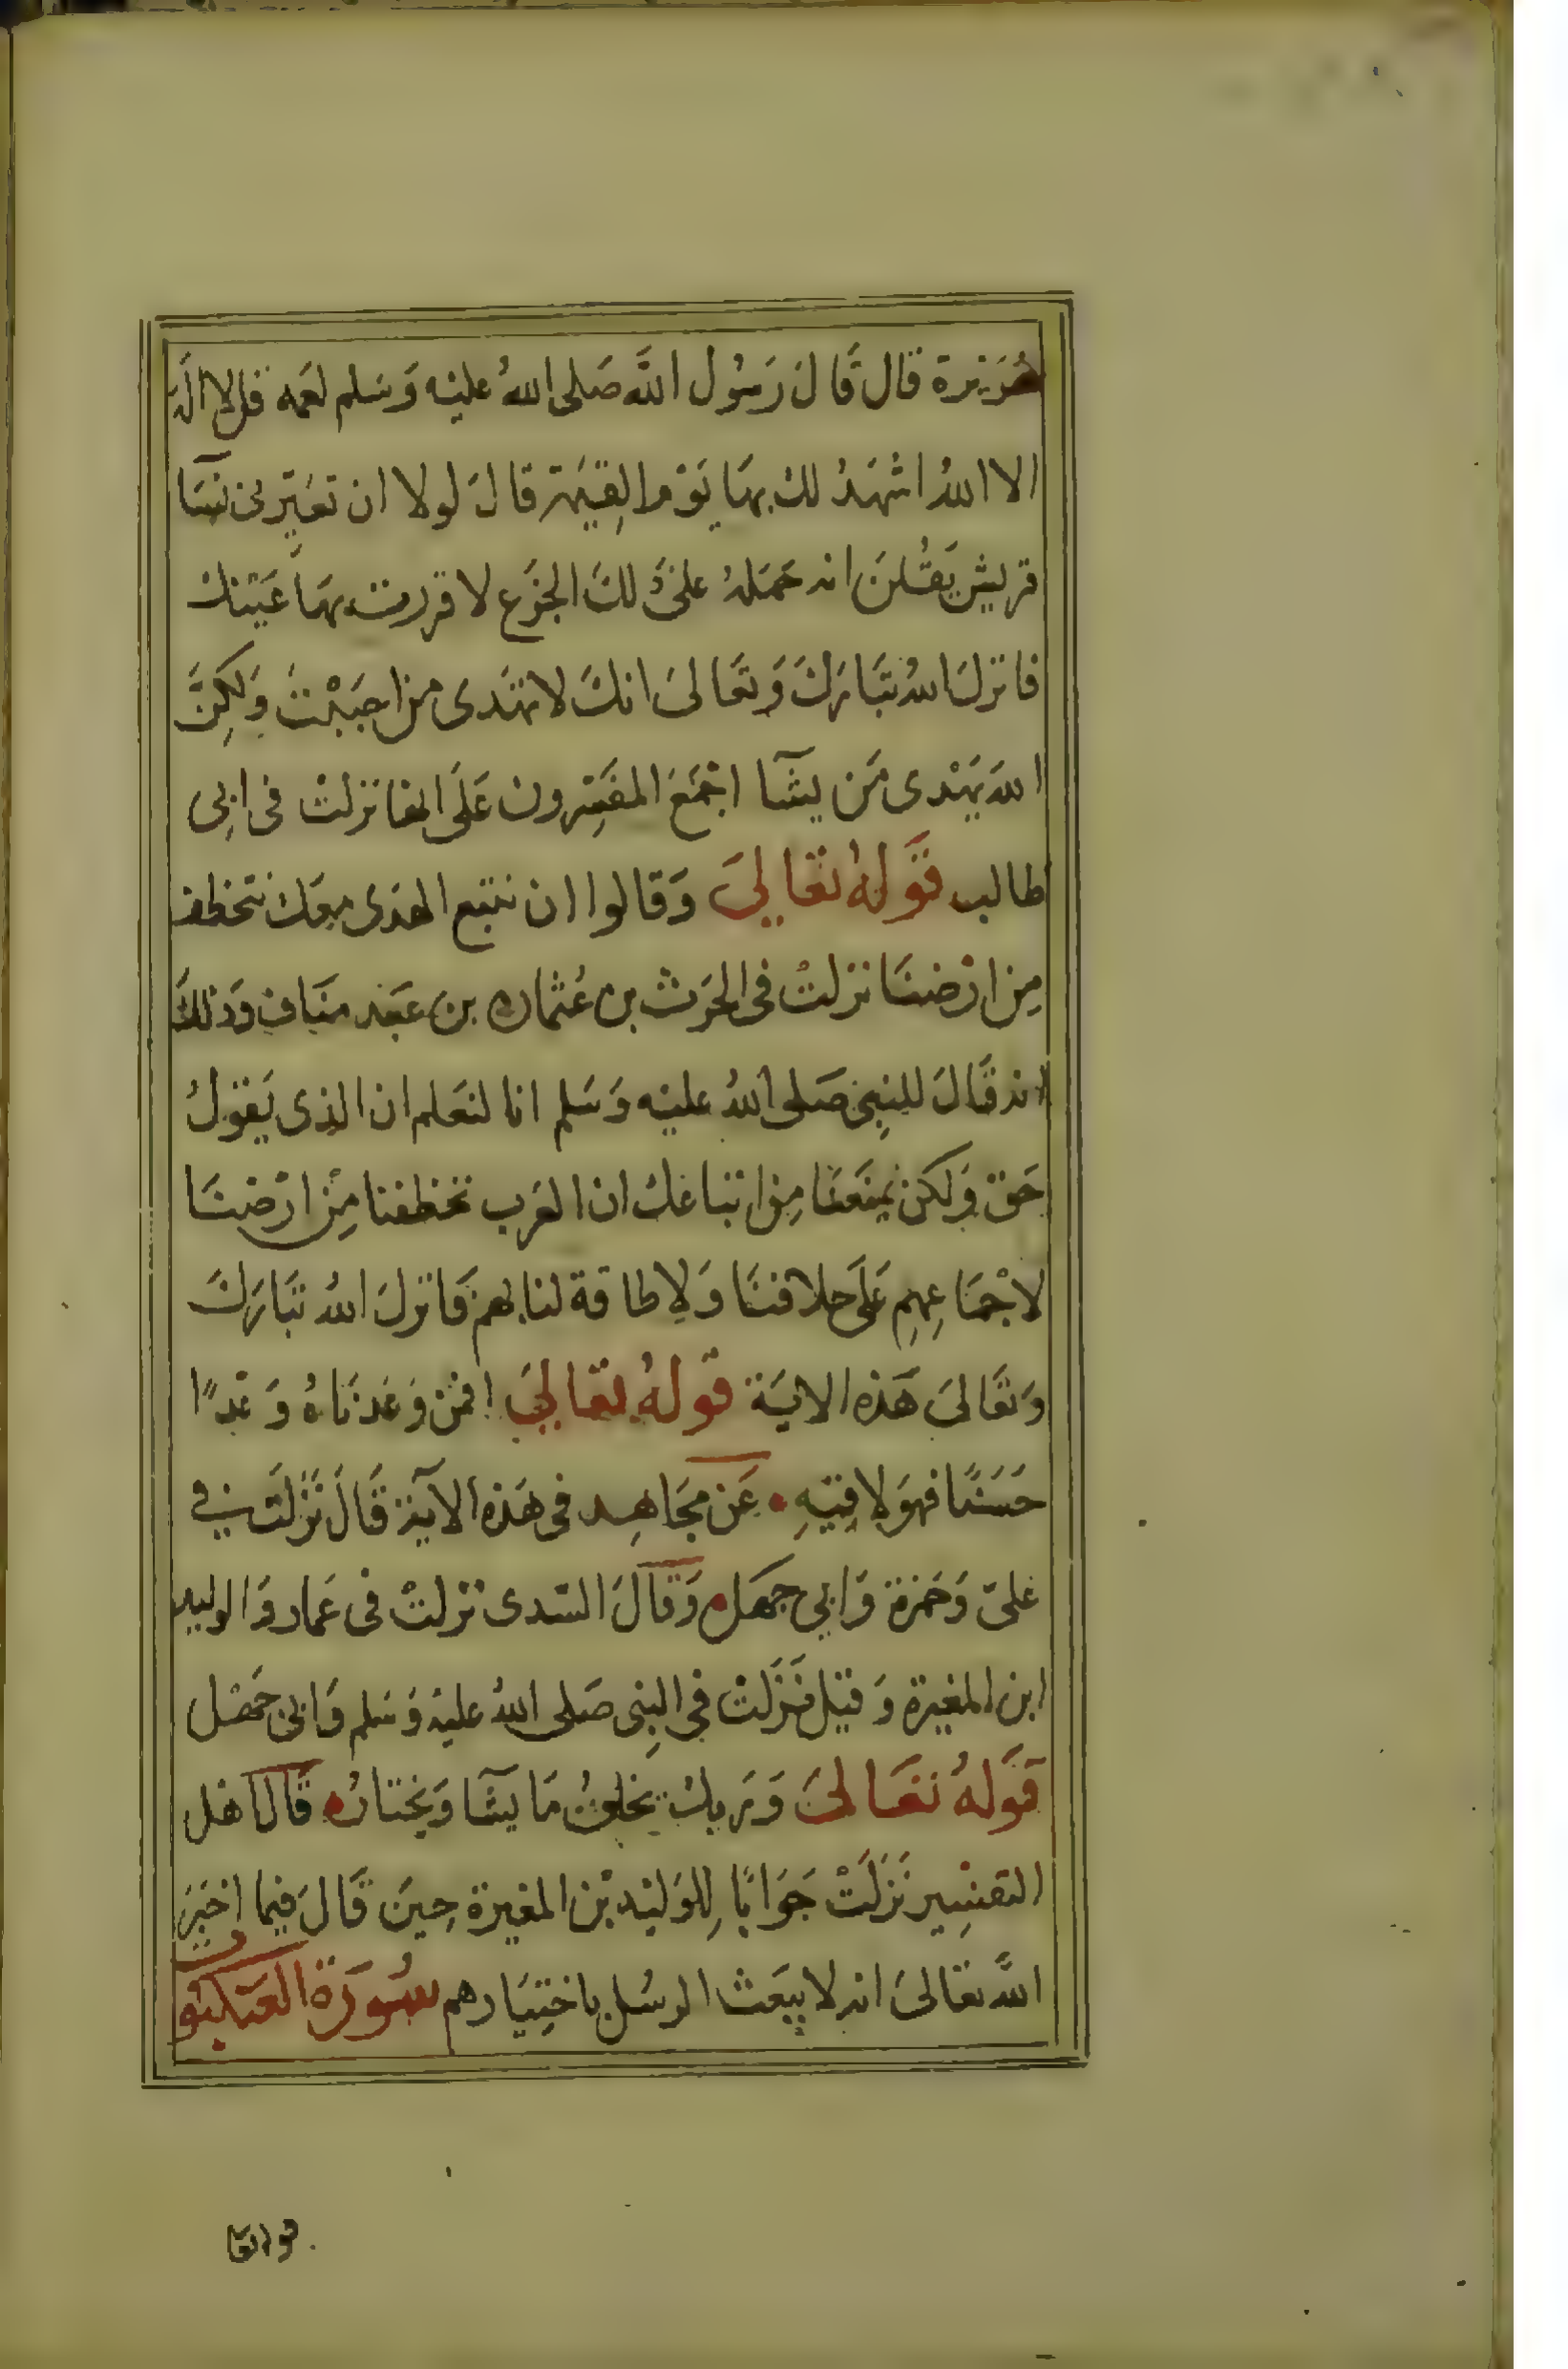 هُرَيرة قال قَالَ رَسُول الله صَلى اللهُ عليْه وَسَلم لعَمه قل لا اله
الا اللهُ اشهَدُ لك بهَا يَوْم القِيٰمَة قالَ لولا ان تعَيّرنى نسَآ
قريش يَقُلنَ انه حَمَلهُ على ذَلكَ الجزَع لاقررت بهَا عَيْنك
فانزلَ اللهُ تبَارَكَ وَتعَالىَ انكَ لا تهَدى من احبَبْتَ وَلكِنَّ
الله يَهْدى مَن يشَآ اجْمَعَ المفَسِّرون عَلَى انها نزلتْ فى ابِى
طالب قَولهُ تعَالىَ وَقالوا ان نتبع الهدَى معَك نتخطف
مِن ارْضنَا نزلتْ فى الحَرث بن عُثمان بن عَبْد منَاف وَذلكَ
انه قَالَ للنِبىِّ صَلى اللهُ عليْه وَسَلم انا لنعَلم ان الذى يَقوْلُ
حَق وَلكن يمنَعنَا مِن اتباعك ان العَرب تخطفنا مِنْ ارْضنَا
لاجْمَاعِهِم عَلَى خلافنَا وَلا طاقة لنا بهم فَانزلَ اللهُ تبَارَكَ
وَتعَالىَ هَذه الايَة قولهُ تعَالىَ افمَن وَعَدنَاهُ وَعْدًا
حَسَنًا فهوَ لاقِيْهِ عَن مجَاهِد فى هَذه الآيَة قَالَ نَزَلَتْ فى
علىّ وَحَمزة وَابى جهَل وَقالَ السّدى نزلتْ فى عَمار وَالوليد
ابن المغيرة وَقيْل نَزَلَتْ فى النِبى صَلى اللهُ عليْه وَسَلم وَابى جَهْل
قَولهُ تعَالىَ وَرَبكَ يَخلقُ مَا يشَآ وَيَختارُ قَالَ اهْل
التفسِير نَزَلَتْ جَوَابًا لِلوَليْد بْن المغيرة حِينَ قَالَ فيما اخبَرَ
اللهُ تعَالىَ انه لا يبعَث الرسُل باختِيَارهم سُورَة العَنكبوت
قوله تعا